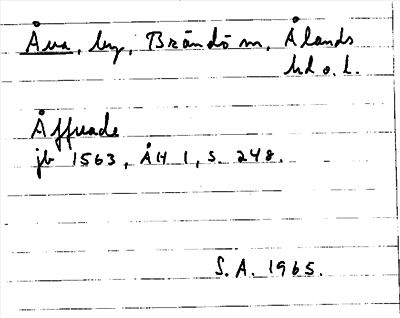 Åva, by, Brändö sn, Ålands
hd o. l.
Åffuade
jb 1563, ÅH 1, s. 248.
S.A. 1965.